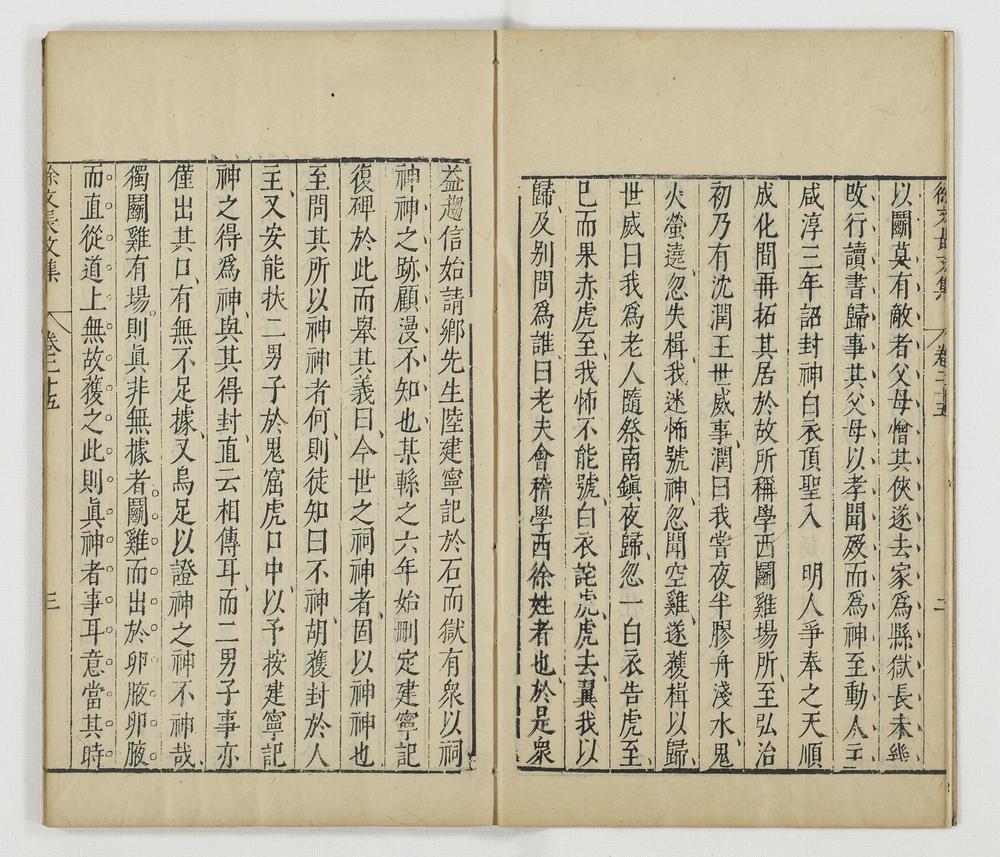 徐文長文集 卷二十五 二
以鬭莫有敵者父母憎其俠遂去家爲縣獄長未幾
改行讀書歸事其父母以孝聞歿而爲神至動人主
咸淳三年詔封神白衣頂聖入 明人爭奉之天順
成化間再拓其居於故所稱學西鬭雞場所至弘治
初乃有沈潤王世威事潤曰我嘗夜半膠舟淺水鬼
火螢遶忽失楫我迷怖號神忽聞空雞遂穫楫以歸
世威曰我爲老人隨祭南鎭夜歸忽一白衣告虎至
巳而果赤虎至我怖不能號白衣詫虎虎去翼我以
歸及別問爲誰曰老夫會稽學西徐姓者也於是衆
益趨信始請鄉先生陸建寧記於石而獄有衆以祠
神神之跡顧漫不知也某繇之六年始刪定建寧記
復碑於此而舉其義曰今世之祠神者固以神神也
至問其所以神神者何則徒知曰不神胡獲封於人
主又安能扶二男子於鬼窟虎口中以予按建寧記
神之得爲神與其得封直云相傳耳而二男子事亦
僅出其口有無不足據又烏足以證神之神不神哉
獨鬭雞有場則眞非無據者鬭雞而出於卵腋卵腋
而直從道上無故獲之此則眞神者事耳意當其時
徐文長文集 卷二十五 三